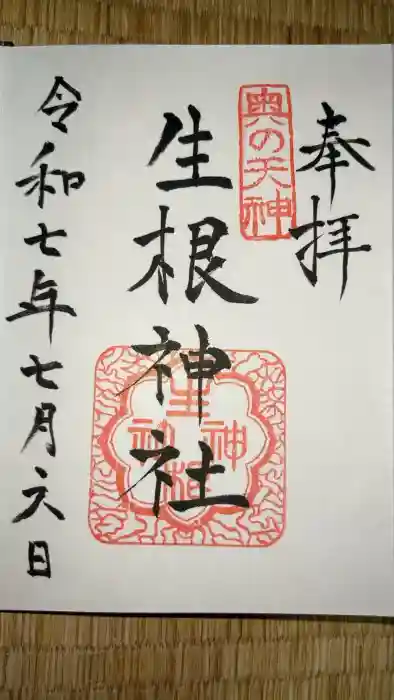 奉拝
奥の天神
生根神社
生根神社
令和七年七月六日